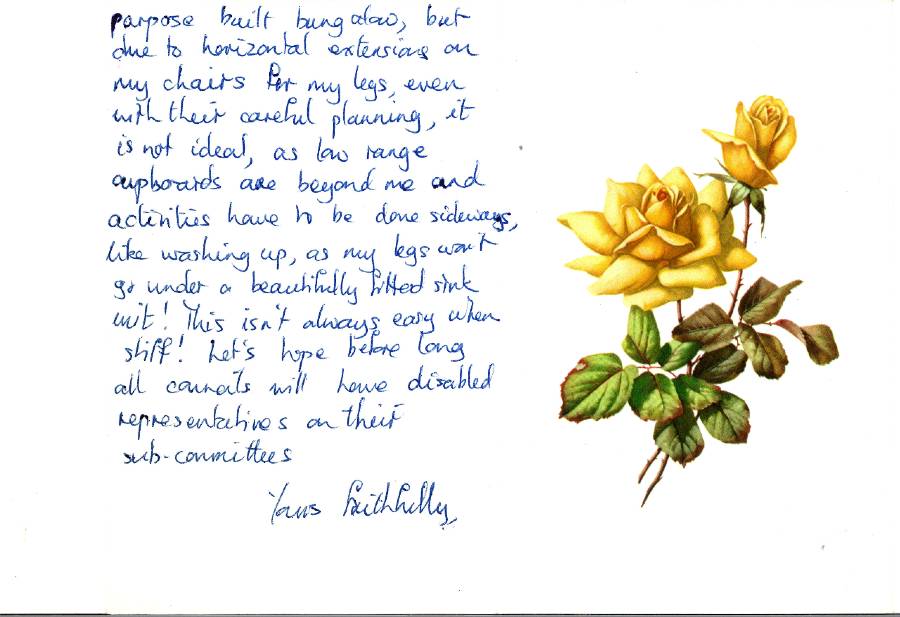 purpose built bungalow, but
due to horizontal extensions on
my chairs for my legs, even
with their careful planning, it
is not ideal, as low range
cupboards are beyond me and
activities have to be done sideways,
like washing up, as my legs won't
go under a beautifully fitted sink
unit! This isn't always easy when
stiff! Let's hope before long
all councils will have disabled
representatives on their
sub-committees
Yours faithfully,